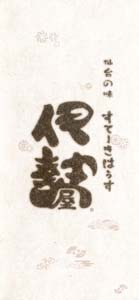 仙台の味
すてーきはうす
伊勢屋